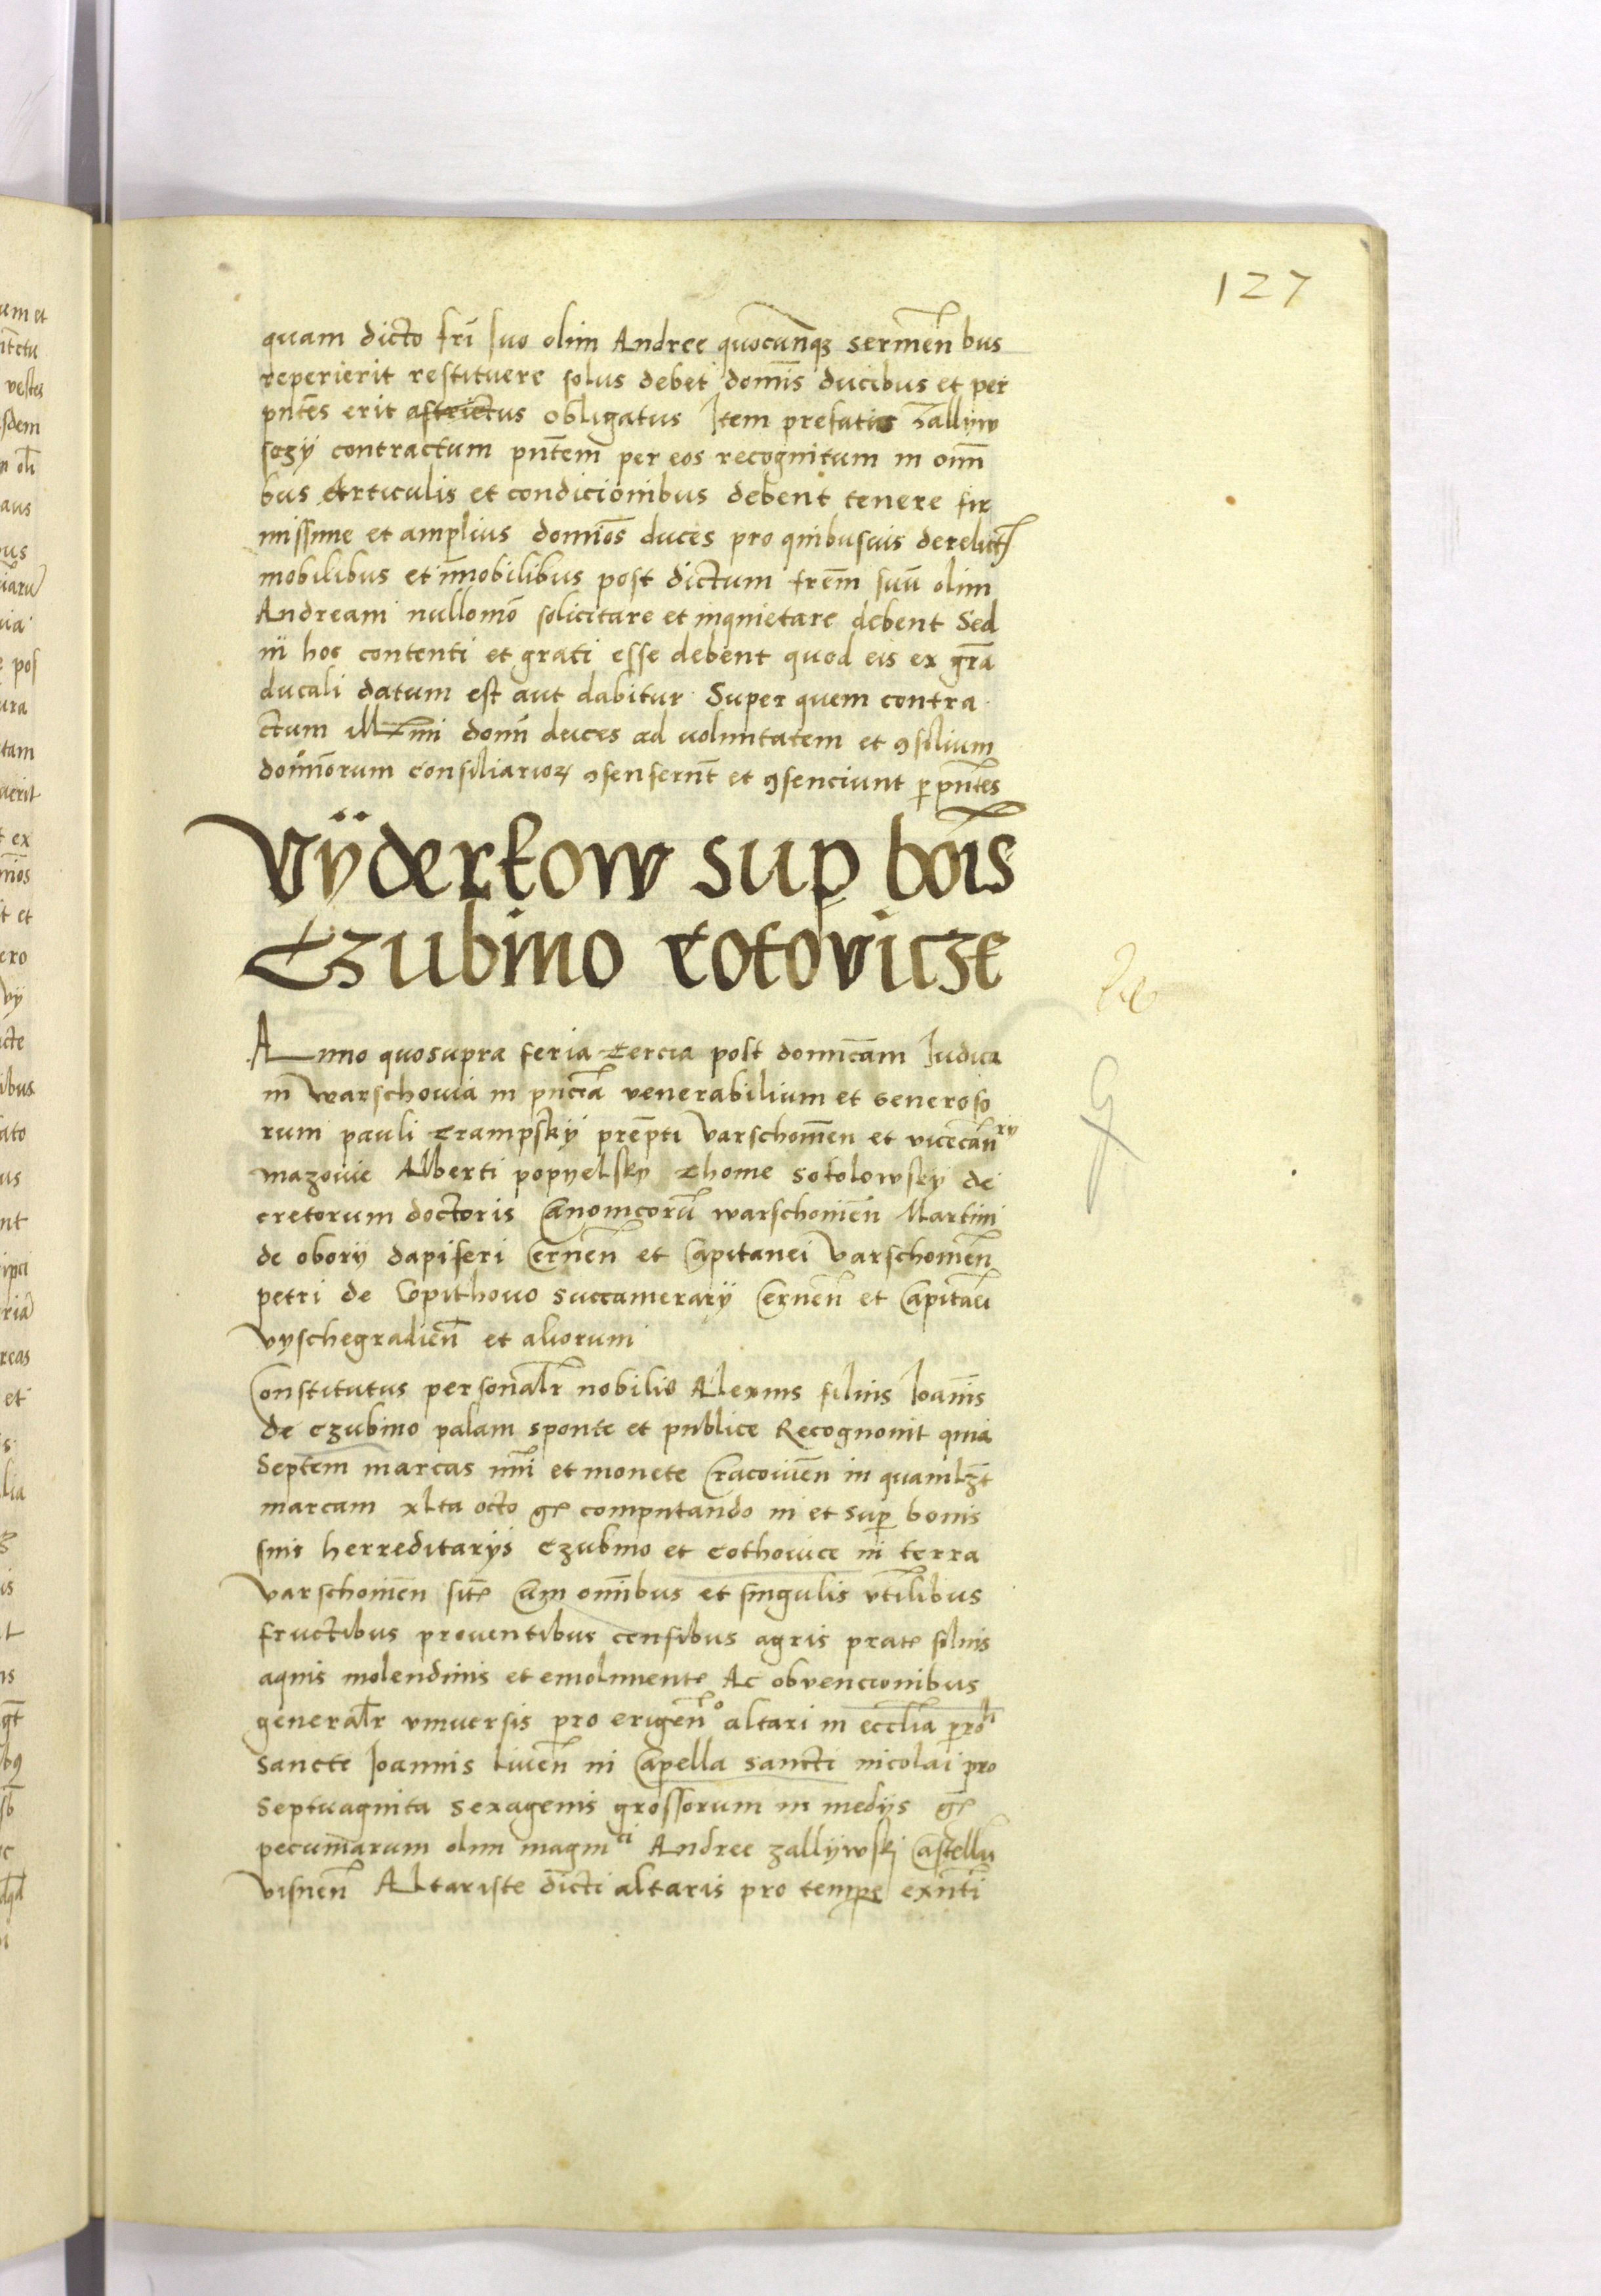 127
quam dicto fri suo olim Andree quocunqȝ sermen bus
reperierit restituere solus debet domis ducibus et per
pntes erit astrictus obligatus Item prefatis Zallyw
sczy contractum pntem per eos recognitum in omi
bus Articulis et condicionibus debent tenere fir
missime et amplius domios duces pro quibusuis derelict
mobilibus et immobilibus post dictum frem suu olim
Andream nullomo solicitare et inquietare debent Sed
in hoc contenti et grati esse debent quod eis ex gra
ducali datum est aut dabitur Super quem contra
ctum Illmi domi duces ad voluntatem et ꝯsilium
dominorum consiliarioꝝ ꝯsensernt et ꝯsenciunt p pntes
Vÿderkow sup bois
Czubino cotovicze
Anno quosupra feria tercia post domicam Iudica
in Warschovia in pncia venerabilium et Generoso
rum pauli Crampsky prepti Varschovien et vicecanry
mazovie Alberti popyelsky Thome Sokolowsky de
cretorum doctoris Canonicoru warschovien Martini
de obory dapiferi Cernen et Capitanei Varschovien
petri de Copithovo succamerarÿ Cernen et Capitaei
Vyschegradien et aliorum
Constitutus personalr nobilis Alexius filius Ioannis
de czubino palam sponte et publice Recognouit quia
Septem marcas nmi et monete Cracovien in quamlȝt
marcam xlta octo gr computando in et sup bonis
suis herreditarÿs Czubino et Cothovice in terra
Varschovien sit Cum omnibus et singulis vtilibus
fructibus proventibus censibus agris prat siluis
aquis molendinis et emolument Ac obvencionibus
generalr vniversis pro erigen altari in ecclia prol
sancte Ioannis Liven in Capella sancti nicolai pro
Septuaginta Sexagenis grossorum in medÿs gr
pecuniarum olim magnci Andree zallÿwskj Castellu
Visnen Altariste dicti altaris pro tempe exinti